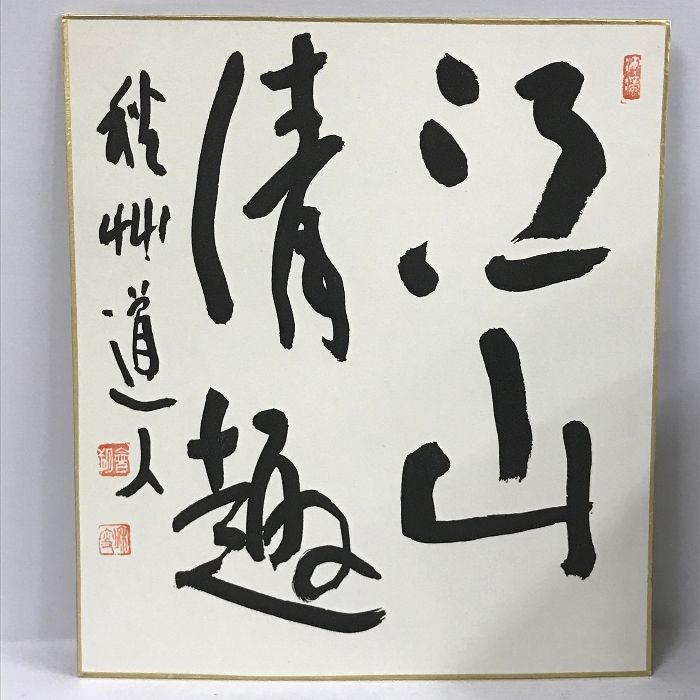 江山
清趣
秋州道人